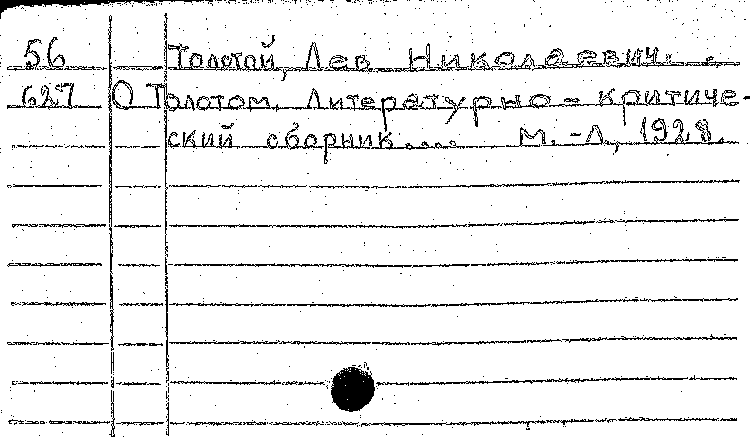 56 Толстой, Лев Николаевич.
627 О Толстом. Литературно-критиче-
ский сборник.... М.-Л., 1928.